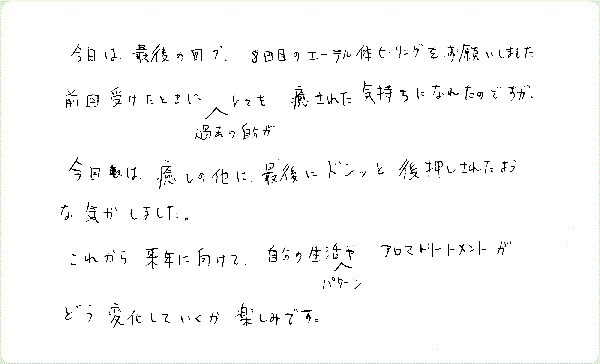 今日は、最後の回で、8回目のエーテル体ヒーリングをお願いしました
前回受けたときに とても 癒された気持ちになれたのですが、
過去の自分が
今回は、癒しの他に、最後にドンッと後押しされたよう
な気がしました。
これから来年に向けて、自分の生活や アロマトリートメントが
パターン
どう変化していくか楽しみです。